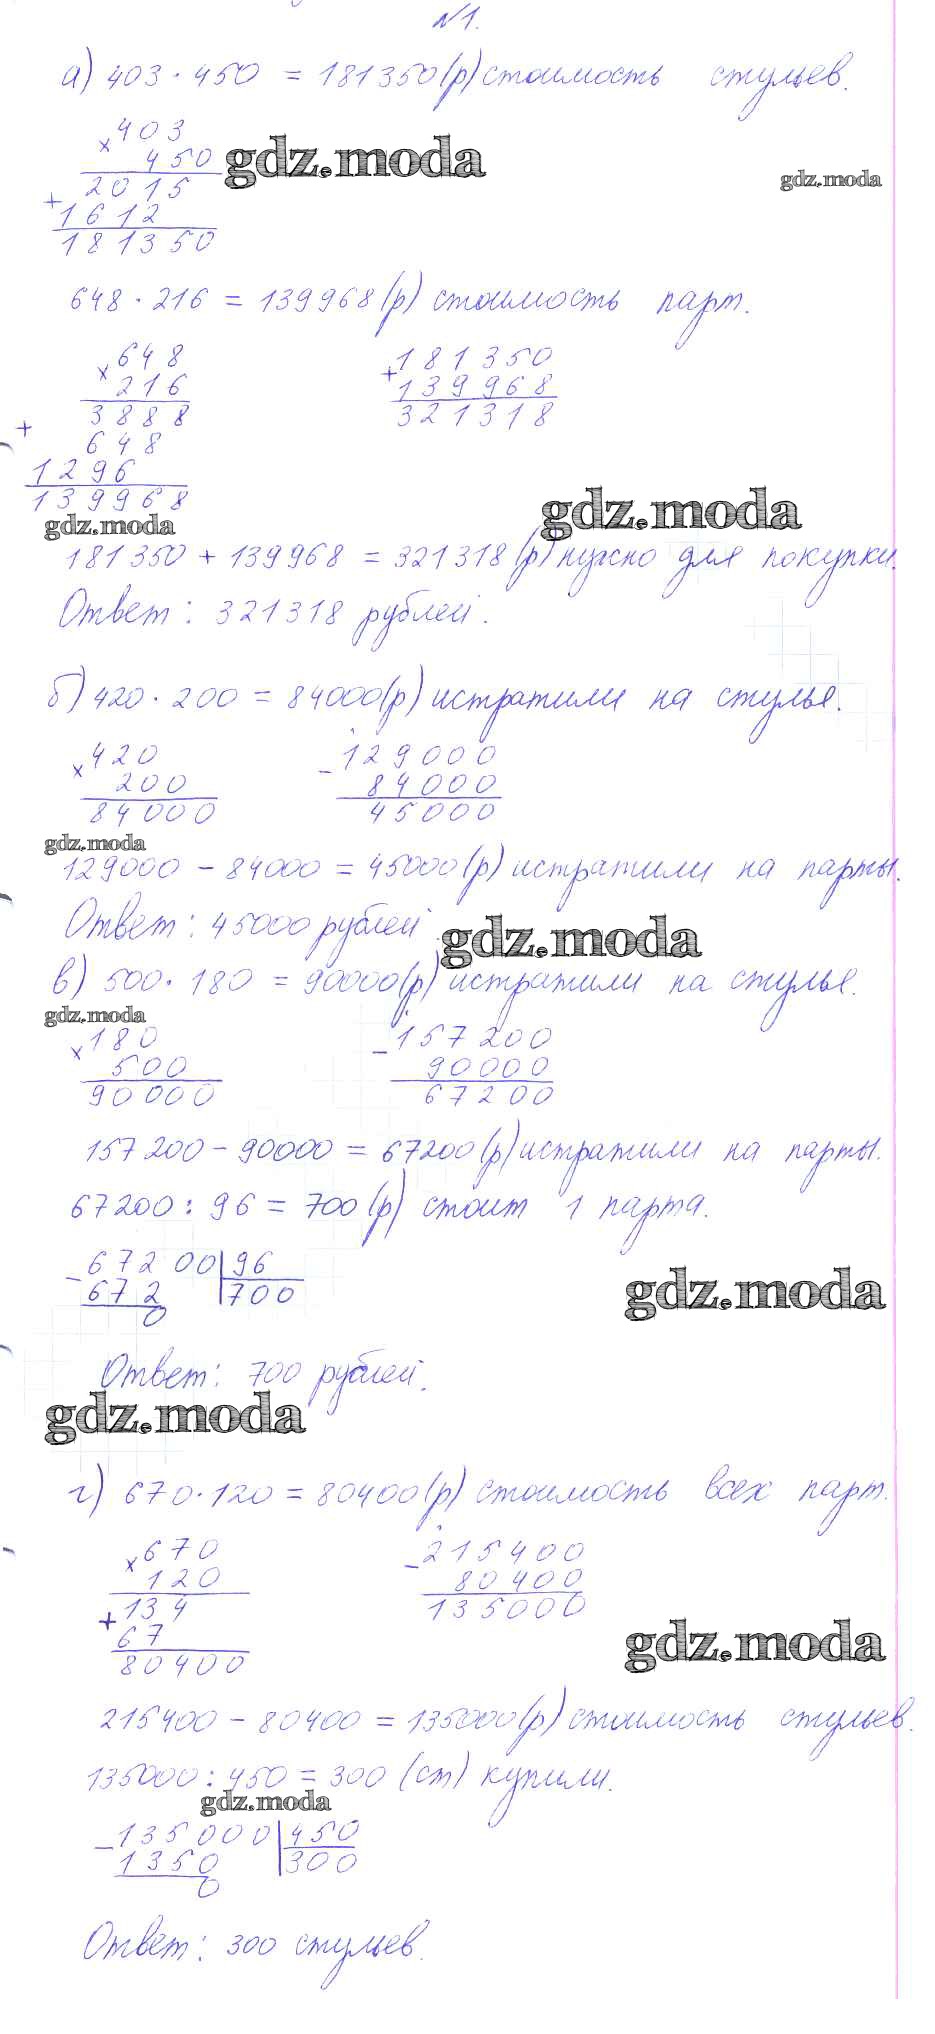 №1.
а) 403 · 450 = 181350(р) стоимость стульев.
× 403
450
gdz.moda
gdz.moda
+ 2015
1612
181350
648 · 216 = 139968(р) стоимость парт.
× 648
216
+ 3888
648
1296
139968
+ 181350
139968
321318
gdz.moda
gdz.moda
181350 + 139968 = 321318(р) нужно для покупки.
Ответ: 321318 рублей.
б) 420 · 200 = 84000(р) истратили на стулья.
× 420
200
84000
- 129000
84000
45000
gdz.moda
129000 - 84000 = 45000(р) истратили на парты.
Ответ: 45000 рублей
gdz.moda
в) 500 · 180 = 90000(р) истратили на стулья.
gdz.moda
× 180
500
90000
- 157200
90000
67200
157200 - 90000 = 67200(р) истратили на парты.
67200 : 96 = 700(р) стоит 1 парта.
- 67200 | 96
672 | 700
0
gdz.moda
Ответ: 700 рублей.
gdz.moda
г) 670 · 120 = 80400(р) стоимость всех парт.
× 670
120
+ 134
67
80400
- 215400
80400
135000
gdz.moda
215400 - 80400 = 135000(р) стоимость стульев.
135000 : 450 = 300 (ст) купили.
gdz.moda
- 135000 | 450
1350 | 300
0
Ответ: 300 стульев.